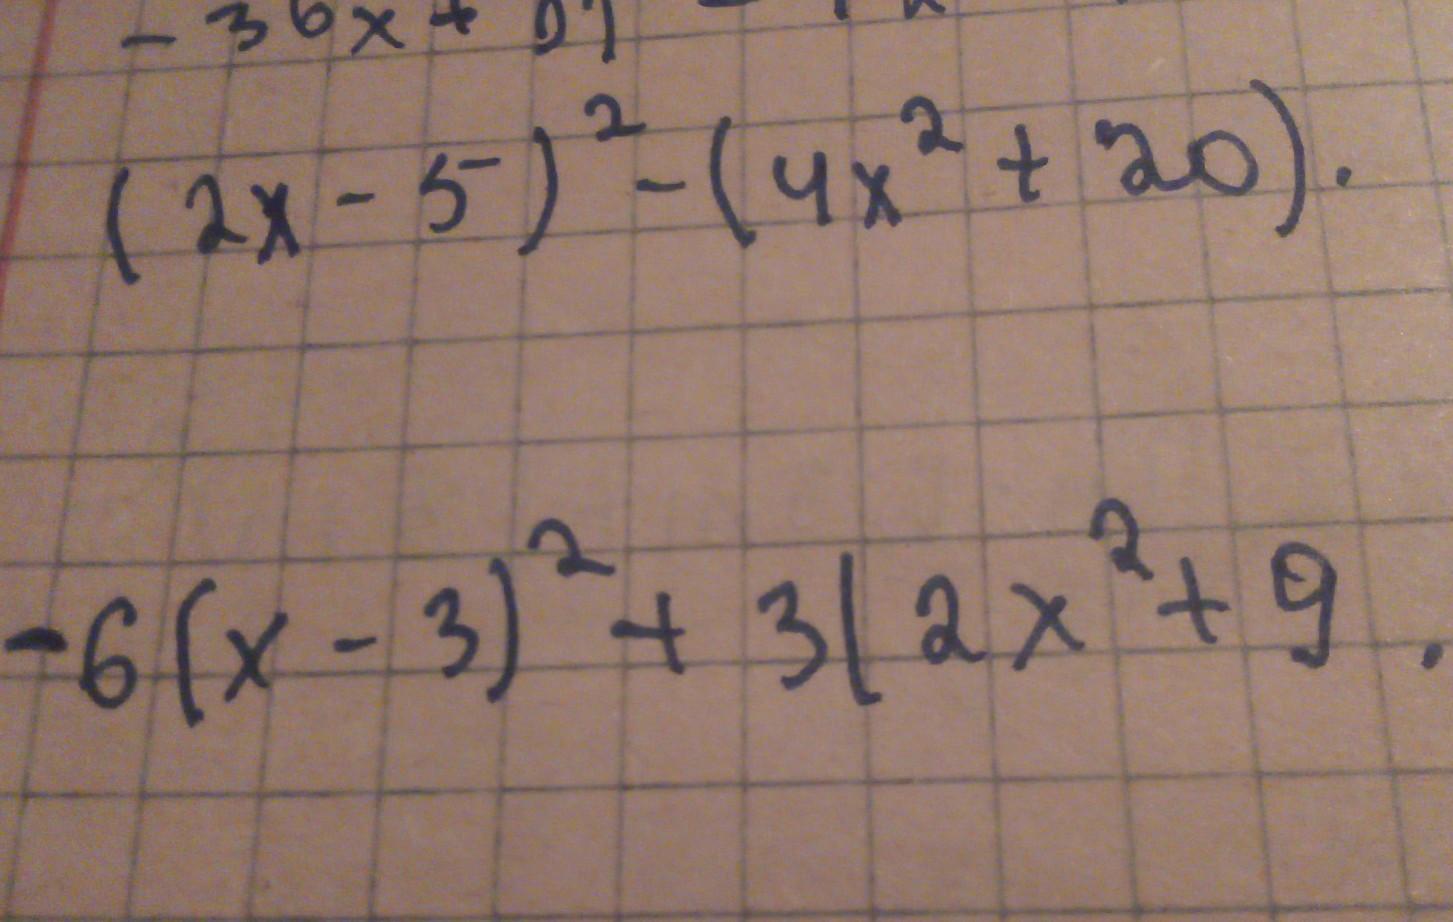 - 36x +
(2x - 5)² - (4x² + 20).
-6(x - 3)² + 3(2x² + 9.